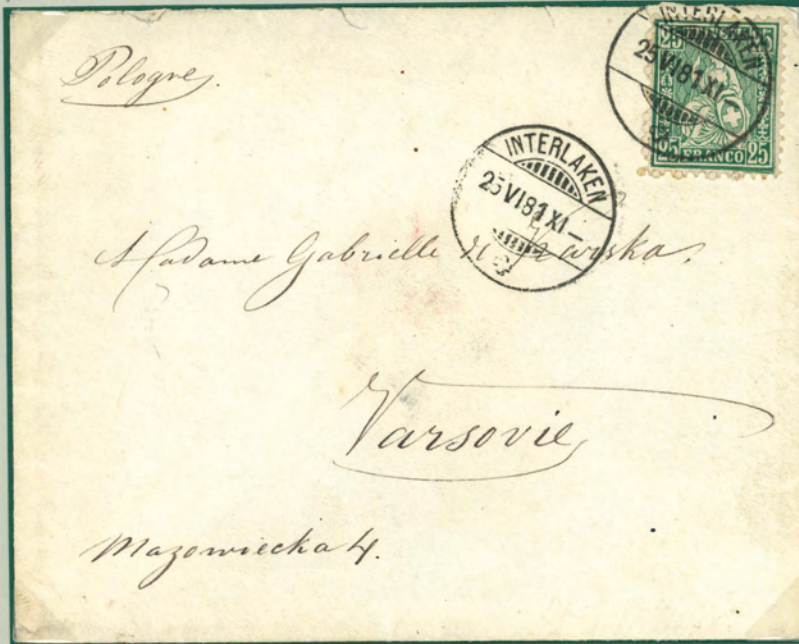 Pologne.
INTERLAKEN
25 VI 81 XI –
25 25
25 FRANCO 25
INTERLAKEN
25 VI 81 XI –
Madame Gabrielle de
Varsovie
Mazowiecka 4.